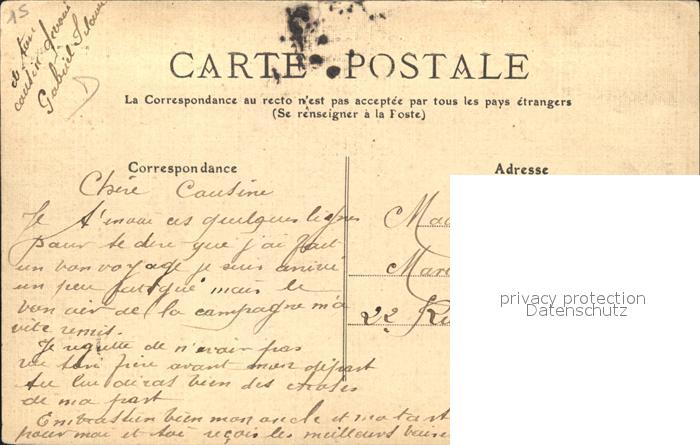 15
de ton
cousin dévoué
Gabriel
D
CARTE POSTALE
La Correspondance au recto n'est pas acceptée par tous les pays étrangers
(Se renseigner à la Poste)
Correspondance
Adresse
Chère Cousine
Je t'envoi ces quelques lignes
pour te dire que j'ai fait
un bon voyage je suis arrivé
un peu fatigué mais le
bon air de la campagne m'a
vite remis.
Je regrette de n'avoir pas
vu ton père avant mon départ
tu lui diras bien des choses
de ma part
Embrasse bien mon oncle et ma tant
pour moi et toi reçois les meilleurs baise
Mad
Mari
22 Ru
privacy protection
Datenschutz